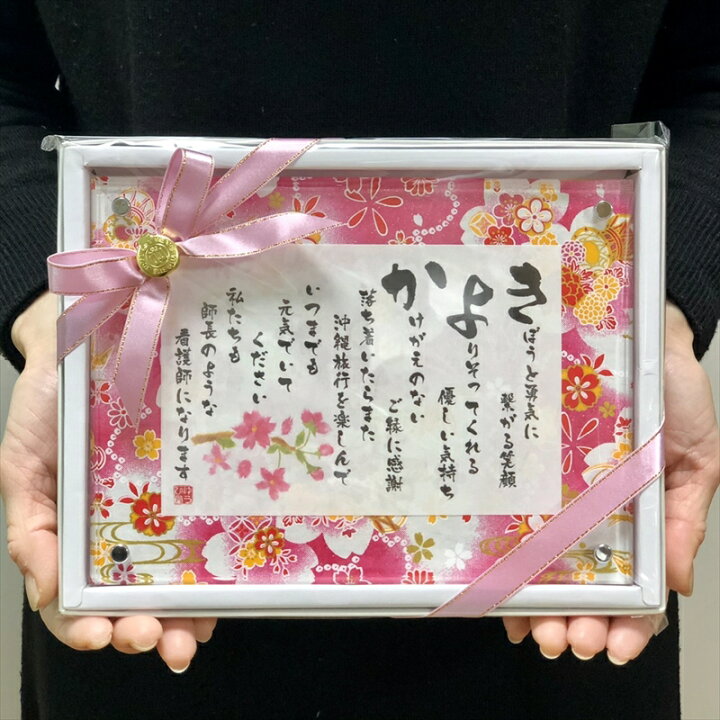 きぼうと勇気に
繋がる笑顔
よりそってくれる
優しい気持ち
かけがえのない
ご縁に感謝
落ち着いたらまた
沖縄旅行を楽しんで
いつまでも
元気でいて
ください
私たちも
師長のような
看護師になります